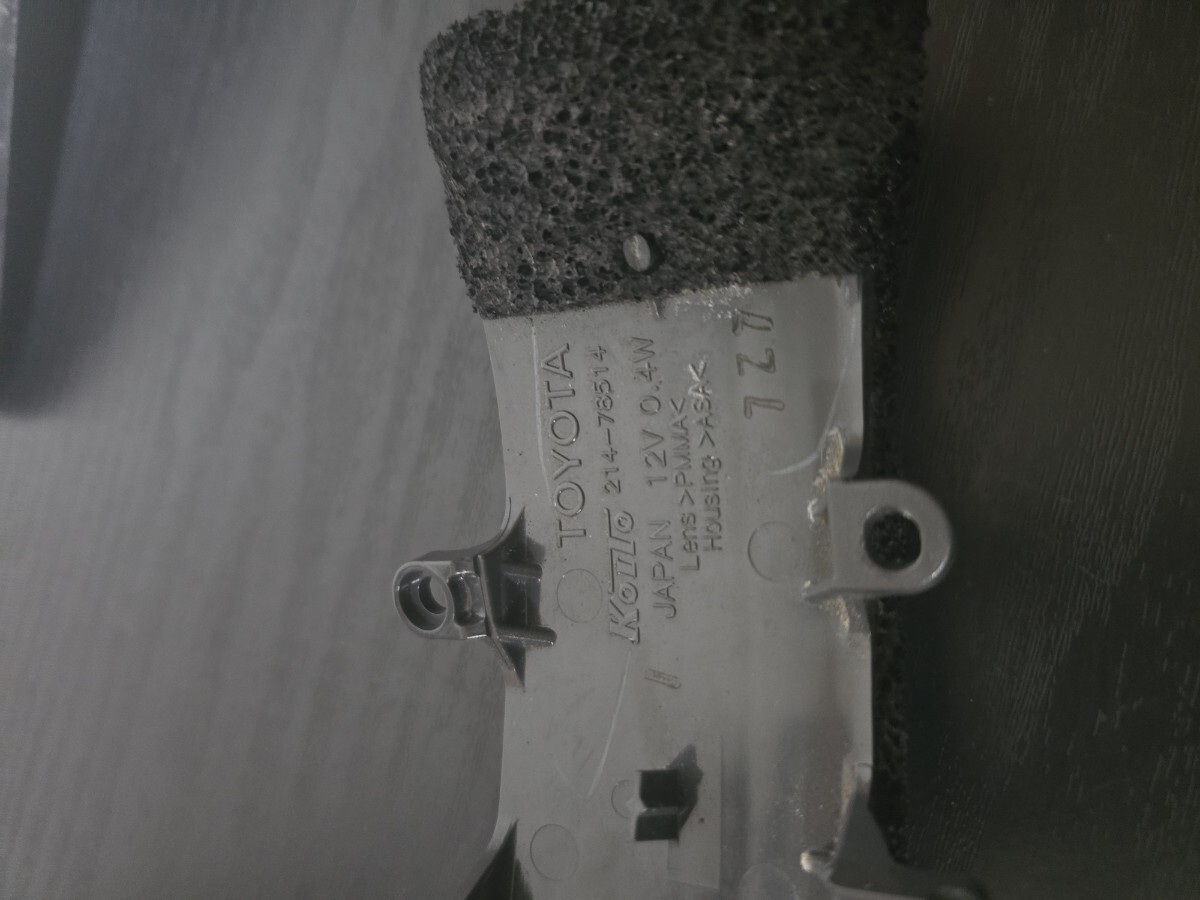 TOYOTA
Koito 214-78514
JAPAN 12V 0.4W
Lens >PMMA<
Housing >ASA<